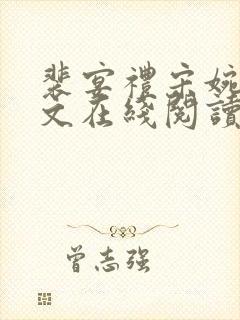 裴宴禮宋婉
文在綫閱讀
曾志强